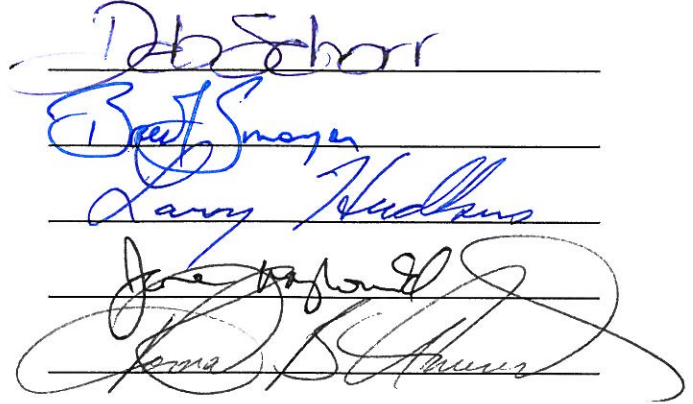 Deb Schorr
Brent Smoyer
Larry Hudkins
Jane Raybould
Roma B Amundson